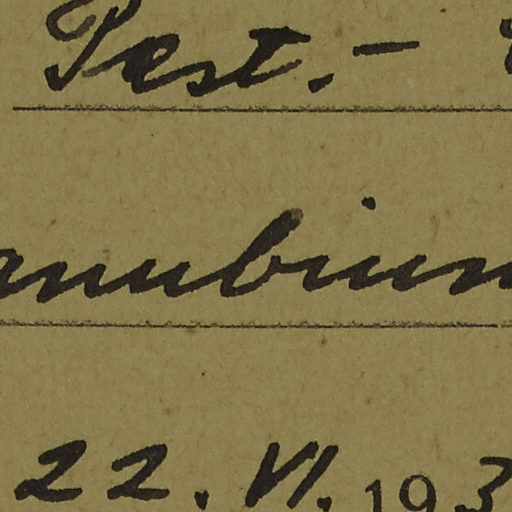 Pest. –
anubium
22. VI. 193